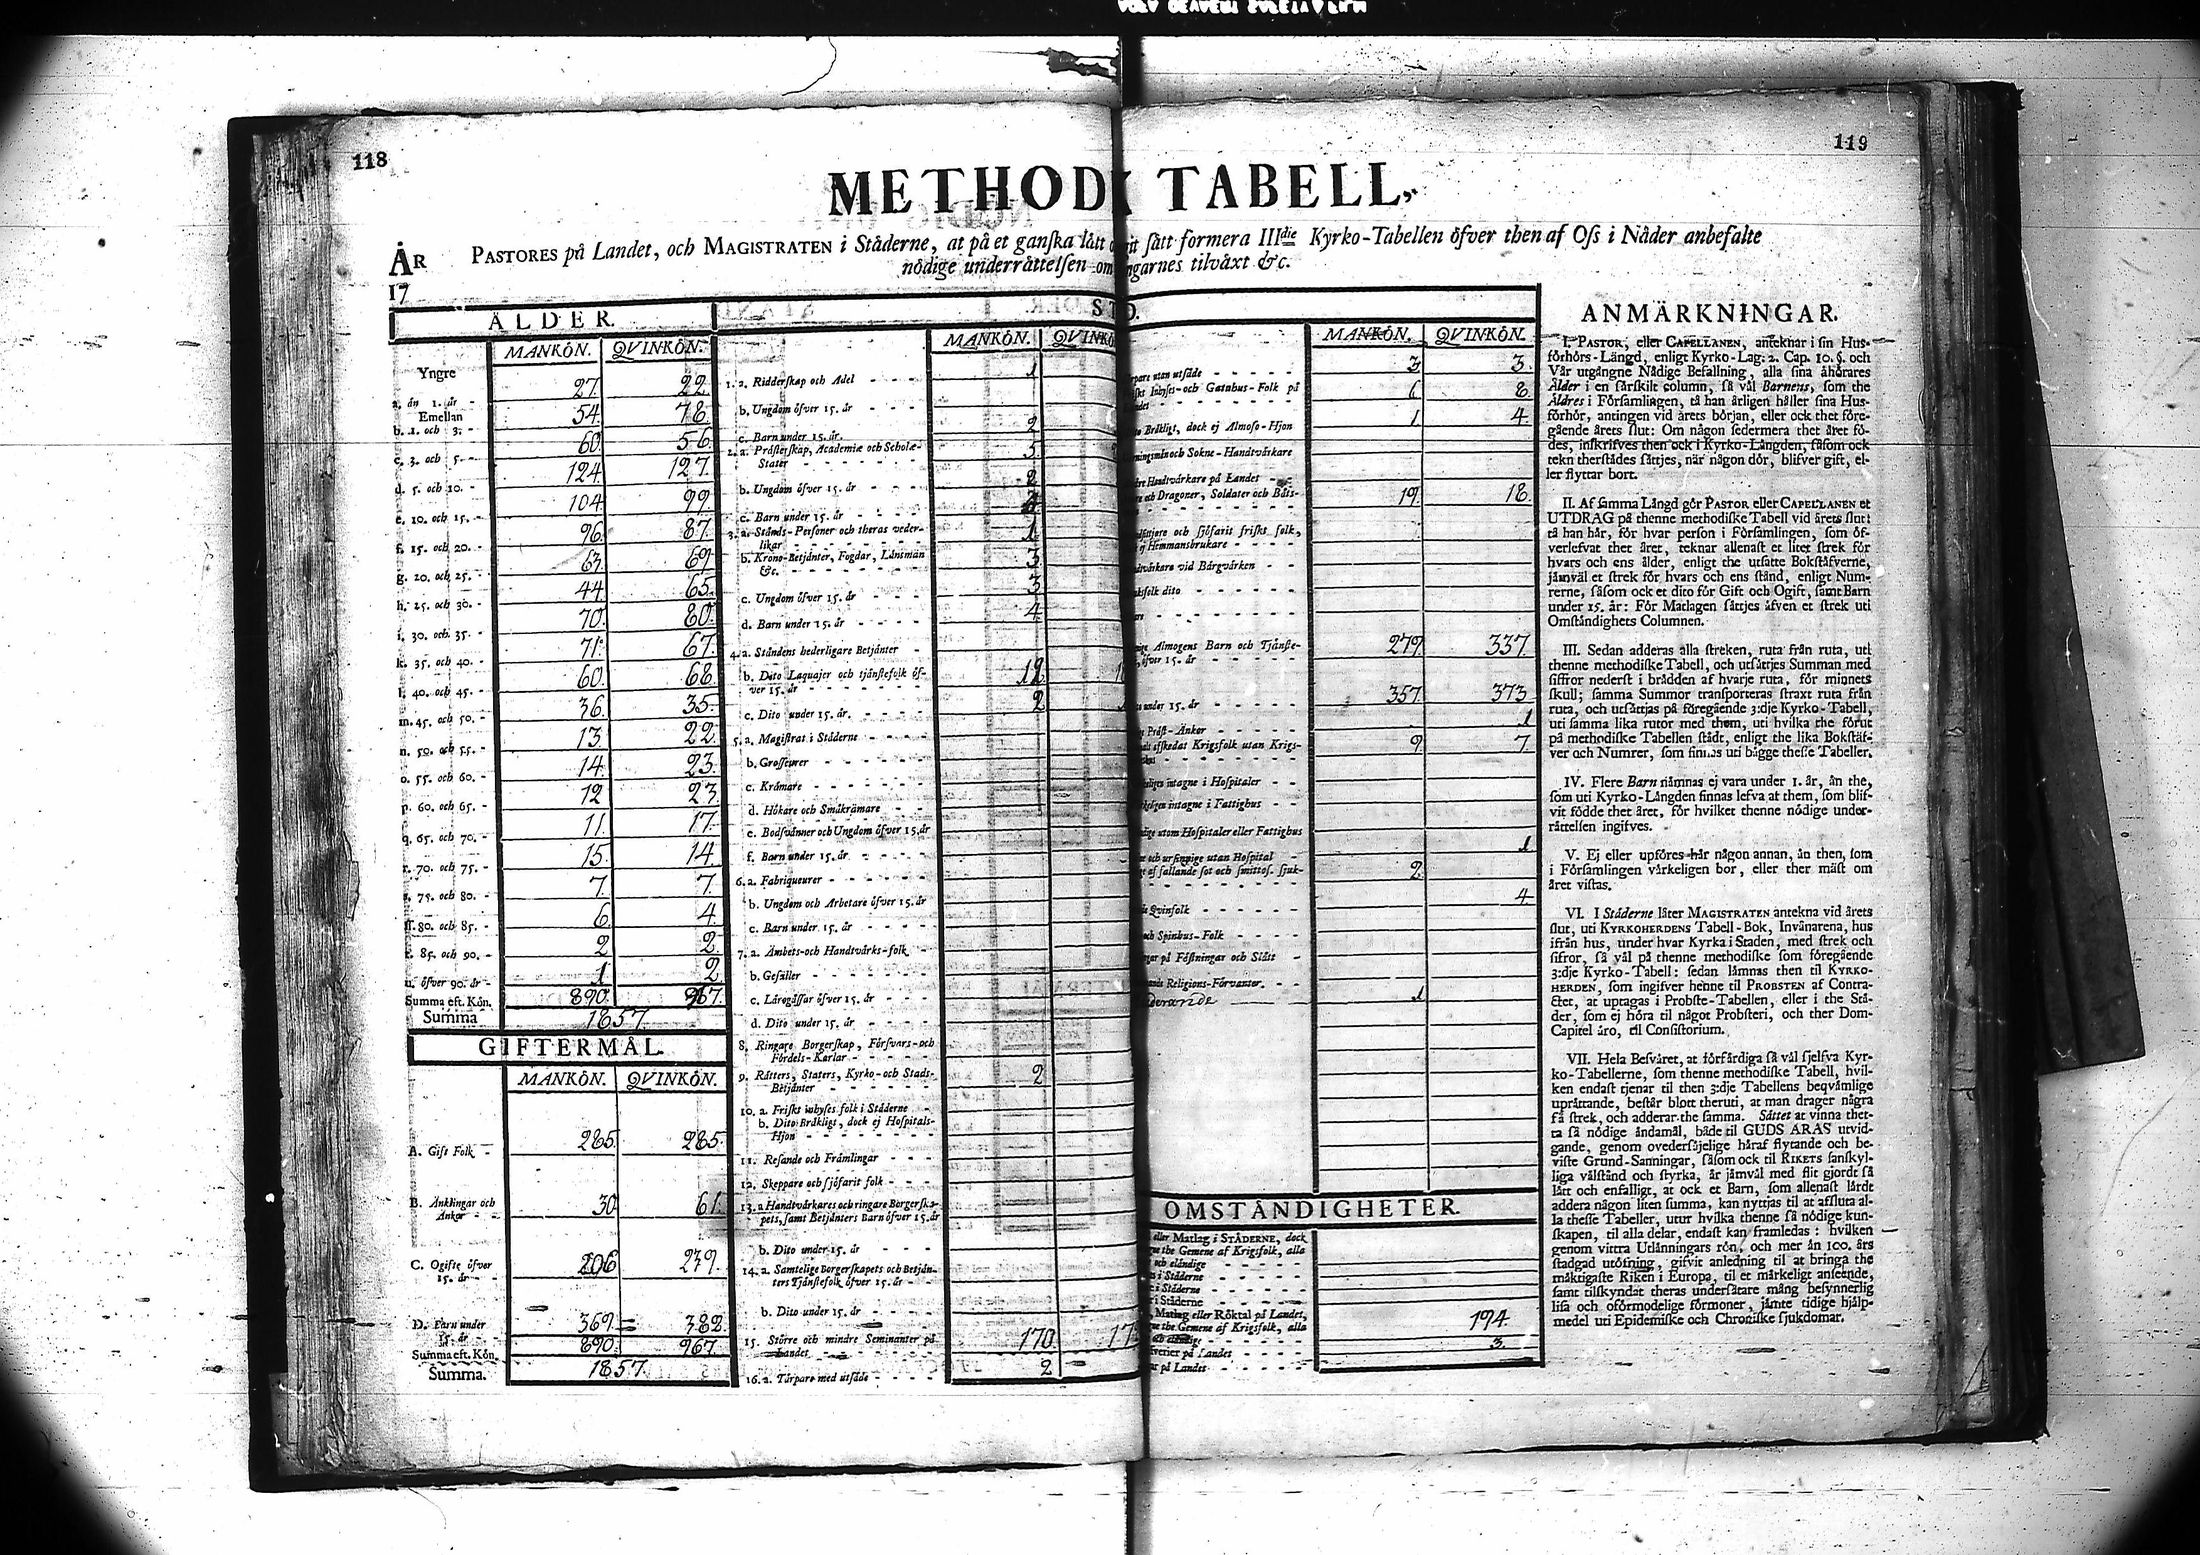 118
119
METHOD TABELL,
ÅR PASTORES på Landet, och MAGISTRATEN i Ståderne, at på et ganska lått sått formera IIIdie Kyrko-Tabellen öfver then af Oss i Nåder anbefalte
17 nödige underråttelsen om tilvåxt &c.
ÅLDER.
MANKÖN. QVINKÖN.
Yngre
a. ån 1. år - 27. 22.
Emellan
b. 1. och 3. - 54. 78.
c. 3. och 5. - 60. 56.
d. 5. och 10. - 124. 127.
e. 10. och 15. - 104. 99.
f. 15. och 20. - 96. 87.
g. 20. och 25. - 63. 69.
h. 25. och 30. - 44. 65.
i. 30. och 35. - 70. 80.
k. 35. och 40. - 71. 67.
l. 40. och 45. - 60. 68.
m. 45. och 50. - 36. 35.
n. 50. och 55. - 13. 22.
o. 55. och 60. - 14. 23.
p. 60. och 65. - 12 23.
q. 65. och 70. - 11. 17.
r. 70. och 75. - 15. 14.
s. 75. och 80. - 7. 7.
ss. 80. och 85. - 6. 4.
t. 85. och 90. - 2 2.
u. öfver 90. år - 1 2
Summa eft. Kön. 890. 967.
Summa 1857.
GIFTERMÅL.
MANKÖN. QVINKÖN.
A. Gift Folk - 285. 285.
B. Änklingar och
Änkor - - 30. 61.
C. Ogifte öfver
15. år - - 206 279.
D. Barn under
15. år - - 369. 382.
Summa eft. Kön. 890. 967.
Summa. 1857.
MANKÖN.
1. a. Ridderskap och Adel - - - - 1
b. Ungdom öfver 15. år - - - -
c. Barn under 15. år. - - - - 2
2. a. Pråsterskap, Academiæ och Scholæ-
Stater - - - - - - - 5.
b. Ungdom öfver 15. år - - - - 2
c. Barn under 15. år - - - -
3. a. Stånds-Personer och theras veder-
likar - - - - - - - 1
b. Krono-Betjånter, Fogdar, Lånsmån
&c. - - - - - - - 3
c. Ungdom öfver 15. år - - - - 3
d. Barn under 15. år - - - - 4
4. a. Ståndens hederligare Betjånter -
b. Dito Laquajer och tjånstefolk öf-
ver 15. år - - - - - - 12
c. Dito under 15. år. - - - - 2
5. a. Magistrat i Ståderne - - - -
b. Grosseurer - - - - - -
c. Kråmare - - - - - -
d. Hökare och Småkråmare - - -
e. Bodsvånner och Ungdom öfver 15. år
f. Barn under 15. år - - - -
6. a. Fabriqueurer - - - - - -
b. Ungdom och Arbetare öfver 15. år
c. Barn under 15. år - - - -
7. a. Åmbets-och Handtvårks-folk - -
b. Gesåller - - - - - -
c. Lårogåssar öfver 15. år - - -
d. Dito under 15. år - - - -
8. Ringare Borgerskap, Försvars-och
Fördels-Karlar - - - - -
9. Råtters, Staters, Kyrko-och Stads-
Betjånter - - - - - - 2
10. a. Friskt inhyses folk i Ståderne -
b. Dito Bråkligt, dock ej Hospitals-
Hjon - - - - - - -
11. Resande och Fråmlingar - - -
12. Skeppare och sjöfarit folk - - -
13. a. Handtvårkares och ringare Borgerska-
pets, samt Betjånters Barn öfver 15. år
b. Dito under 15. år - - - -
14. a. Samtelige Borgerskapets och Betjån-
ters Tjånstefolk öfver 15. år - -
b. Dito under 15. år - - - -
15. Större och mindre Heminanter på
Landet - - - - - 170.
16. a. Torpare med utsåde - - - - 2
MANKÖN. QVINKÖN.
utan utsåde - - - - - - 3.
Inhyses-och Gatuhus-Folk på
- - - - - - - 6 8.
Bråkligt, dock ej Almoso-Hjon 1 4.
och Sokne-Handtvårkare
Handtvårkare på Landet - -
och Dragoner, Soldater och Båts-
- - - - - - - 19. 18.
och sjöfarit friskt folk,
ej Hemmansbrukare - - - -
vid Bårgvårken - -
dito - - - - - -
Almogens Barn och Tjånste-
öfver 15. år - - - - - 279. 337.
under 15. år - - - - - 357. 373
Pråst-Änkor - - - - - 1
afskedat Krigsfolk utan Krigs-
- - - - - - - 9. 7.
intagne i Hospitaler - -
intagne i Fattighus - -
utom Hospitaler eller Fattighus
och ursinnige utan Hospital - 1
af fallande sot och smittos. sjuk-
- - - - - - - 2.
Qvinfolk - - - - - - 4
och Spinhus-Folk - - - -
på Fåstningar och Slått -
Religions-Förvanter. - -
1
OMSTÅNDIGHETER.
eller Matlag i STÅDERNE, dock
the Gemene af Krigsfolk, alla
och elåndige - - - - -
i Ståderne - - - - -
i Ståderne - - - - -
i Ståderne - - - - -
Matlag eller Röktal på Landet,
the Gemene af Krigsfolk, alla 194
- - - - - 3.
på Landet - - - - -
på Landet - - - - -
ANMÄRKNINGAR.
I. PASTOR, eller CAPELLANEN, antecknar i sin Hus-
förhörs-Långd, enligt Kyrko-Lag: 2. Cap. 10. §. och
Vår utgångne Nådige Befallning, alla sina åhörares
Ålder i en sårskilt column, så vål Barnens, som the
Åldres i Församlingen, tå han årligen håller sina Hus-
förhör, antingen vid årets början, eller ock thet före-
gående årets slut: Om någon sedermera thet året fö-
des, inskrifves then ock i Kyrko-Långden, såsom ock
tekn therstådes såttjes, når någon dör, blifver gift, el-
ler flyttar bort.
II. Af samma Långd gör PASTOR eller CAPELLANEN et
UTDRAG på thenne methodiske Tabell vid årets slut:
tå han hår, för hvar person i Församlingen, som öf-
verlefvat thet året, teknar allenast et litet strek för
hvars och ens ålder, enligt the utsatte Bokståfverne,
jåmvål et strek för hvars och ens stånd, enligt Num-
rerne, såsom ock et dito för Gift och Ogift, samt Barn
under 15. år: För Matlagen såttjes åfven et strek uti
Omståndighets Columnen.
III. Sedan adderas alla streken, ruta från ruta, uti
thenne methodiske Tabell, och utsåttjes Summan med
siffror nederst i brådden af hvarje ruta, för minnets
skull; samma Summor transporteras straxt ruta från
ruta, och utsåttjas på föregående 3:dje Kyrko-Tabell,
uti samma lika rutor med them, uti hvilka the förut
på methodiske Tabellen stådt, enligt the lika Bokståf-
ver och Numrer, som finnas uti bågge thesse Tabeller.
IV. Flere Barn nåmnas ej vara under 1. år, ån the,
som uti Kyrko-Långden finnas lefva at them, som blif-
vit födde thet året, för hvilket thenne nödige under-
råttelsen ingifves.
V. Ej eller upföres hår någon annan, ån then, som
i Församlingen vårkeligen bor, eller ther måst om
året vistas.
VI. I Ståderne låter MAGISTRATEN antekna vid årets
slut, uti KYRKOHERDENS Tabell-Bok, Invånarena, hus
ifrån hus, under hvar Kyrka i Staden, med strek och
sifror, så vål på thenne methodiske som föregående
3:dje Kyrko-Tabell: sedan låmnas then til KYRKO-
HERDEN, som ingifver henne til PROBSTEN af Contra-
ctet, at uptagas i Probste-Tabellen, eller i the Stå-
der, som ej höra til något Probsteri, och ther Dom-
Capitel åro, til Consistorium.
VII. Hela Besvåret, at förfårdiga så vål sjelfva Kyr-
ko-Tabellerne, som thenne methodiske Tabell, hvil-
ken endast tjenar til then 3:dje Tabellens beqvåmlige
upråttande, består blott theruti, at man drager några
få strek, och adderar the samma. Såttet at vinna thet-
ta så nödige åndamål, både til GUDS ÄRAS utvid-
gande, genom ovedersåjelige håraf flytande och be-
viste Grund-Sanningar, såsom ock til RIKETS sanskyl-
liga vålstånd och styrka, år jåmvål med flit gjordt så
lått och enfalligt, at ock et Barn, som allenast lårdt
addera någon liten summa, kan nyttjas til at afsluta al-
la thesse Tabeller, utur hvilka thenne så nödige kun-
skapen, til alla delar, endast kan framledas: hvilken
genom vittra Utlånningars rön, och mer ån 100. års
stadgad utöfning, gifvit anledning til at bringa the
måktigaste Riken i Europa, til et mårkeligt anseende,
samt tilskyndat theras undersåtare mång besynnerlig
lisa och oförmodelige förmoner, jåmte tidige hjålp-
medel uti Epidemiske och Chroniske sjukdomar.